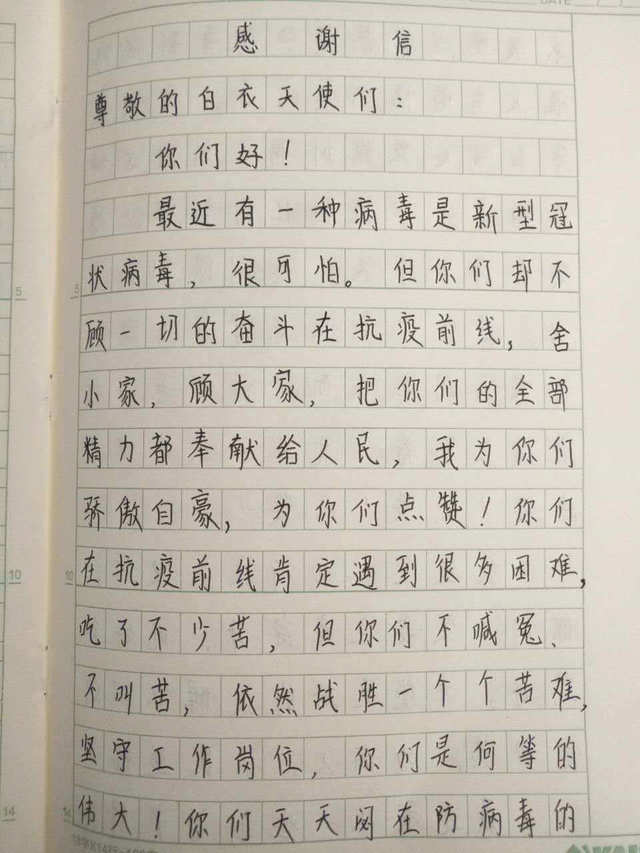 DATE
感谢信
尊敬的白衣天使们：
你们好！
最近有一种病毒是新型冠
状病毒，很可怕。但你们却不
5
5
顾一切的奋斗在抗疫前线，舍
小家，顾大家，把你们的全部
精力都奉献给人民，我为你们
骄傲自豪，为你们点赞！你们
在抗疫前线肯定遇到很多困难，
10
10
吃了不少苦，但你们不喊冤、
不叫苦，依然战胜一个个苦难，
坚守工作岗位，你们是何等的
伟大！你们天天闷在防病毒的
14
14